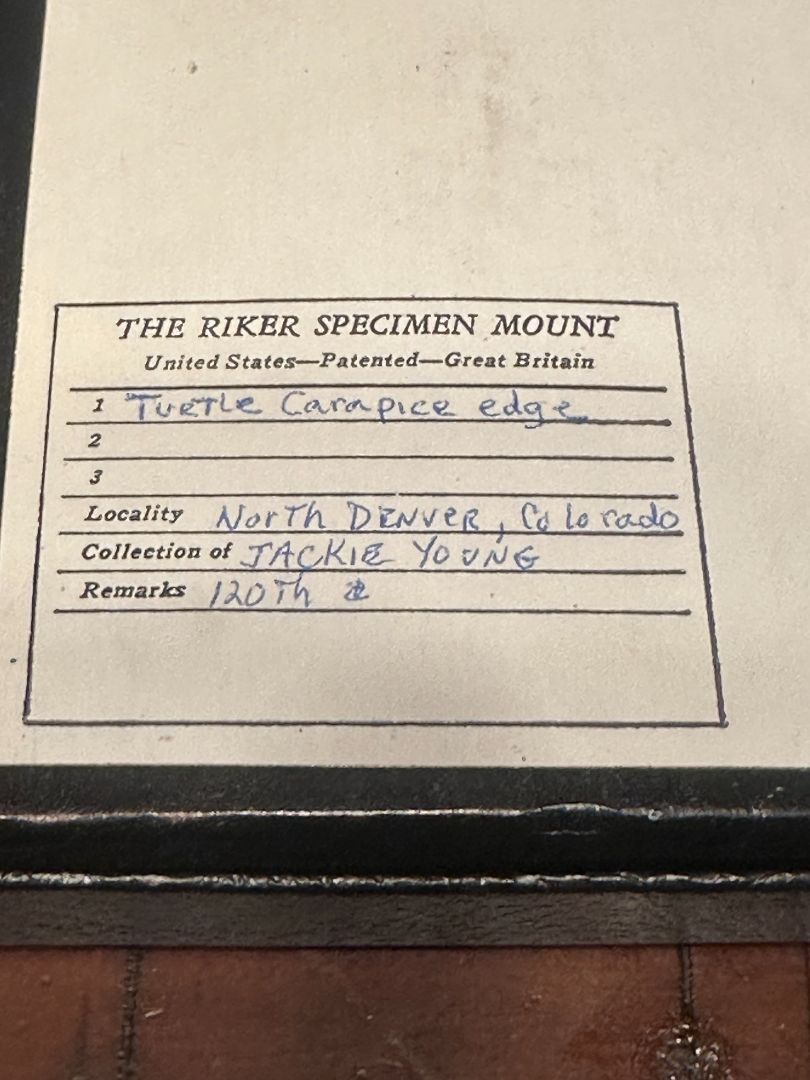 THE RIKER SPECIMEN MOUNT
United States—Patented—Great Britain
1 Turtle Carapice edge
2
3
Locality North DENVER, Colorado
Collection of JACKIE YOUNG
Remarks 120Th